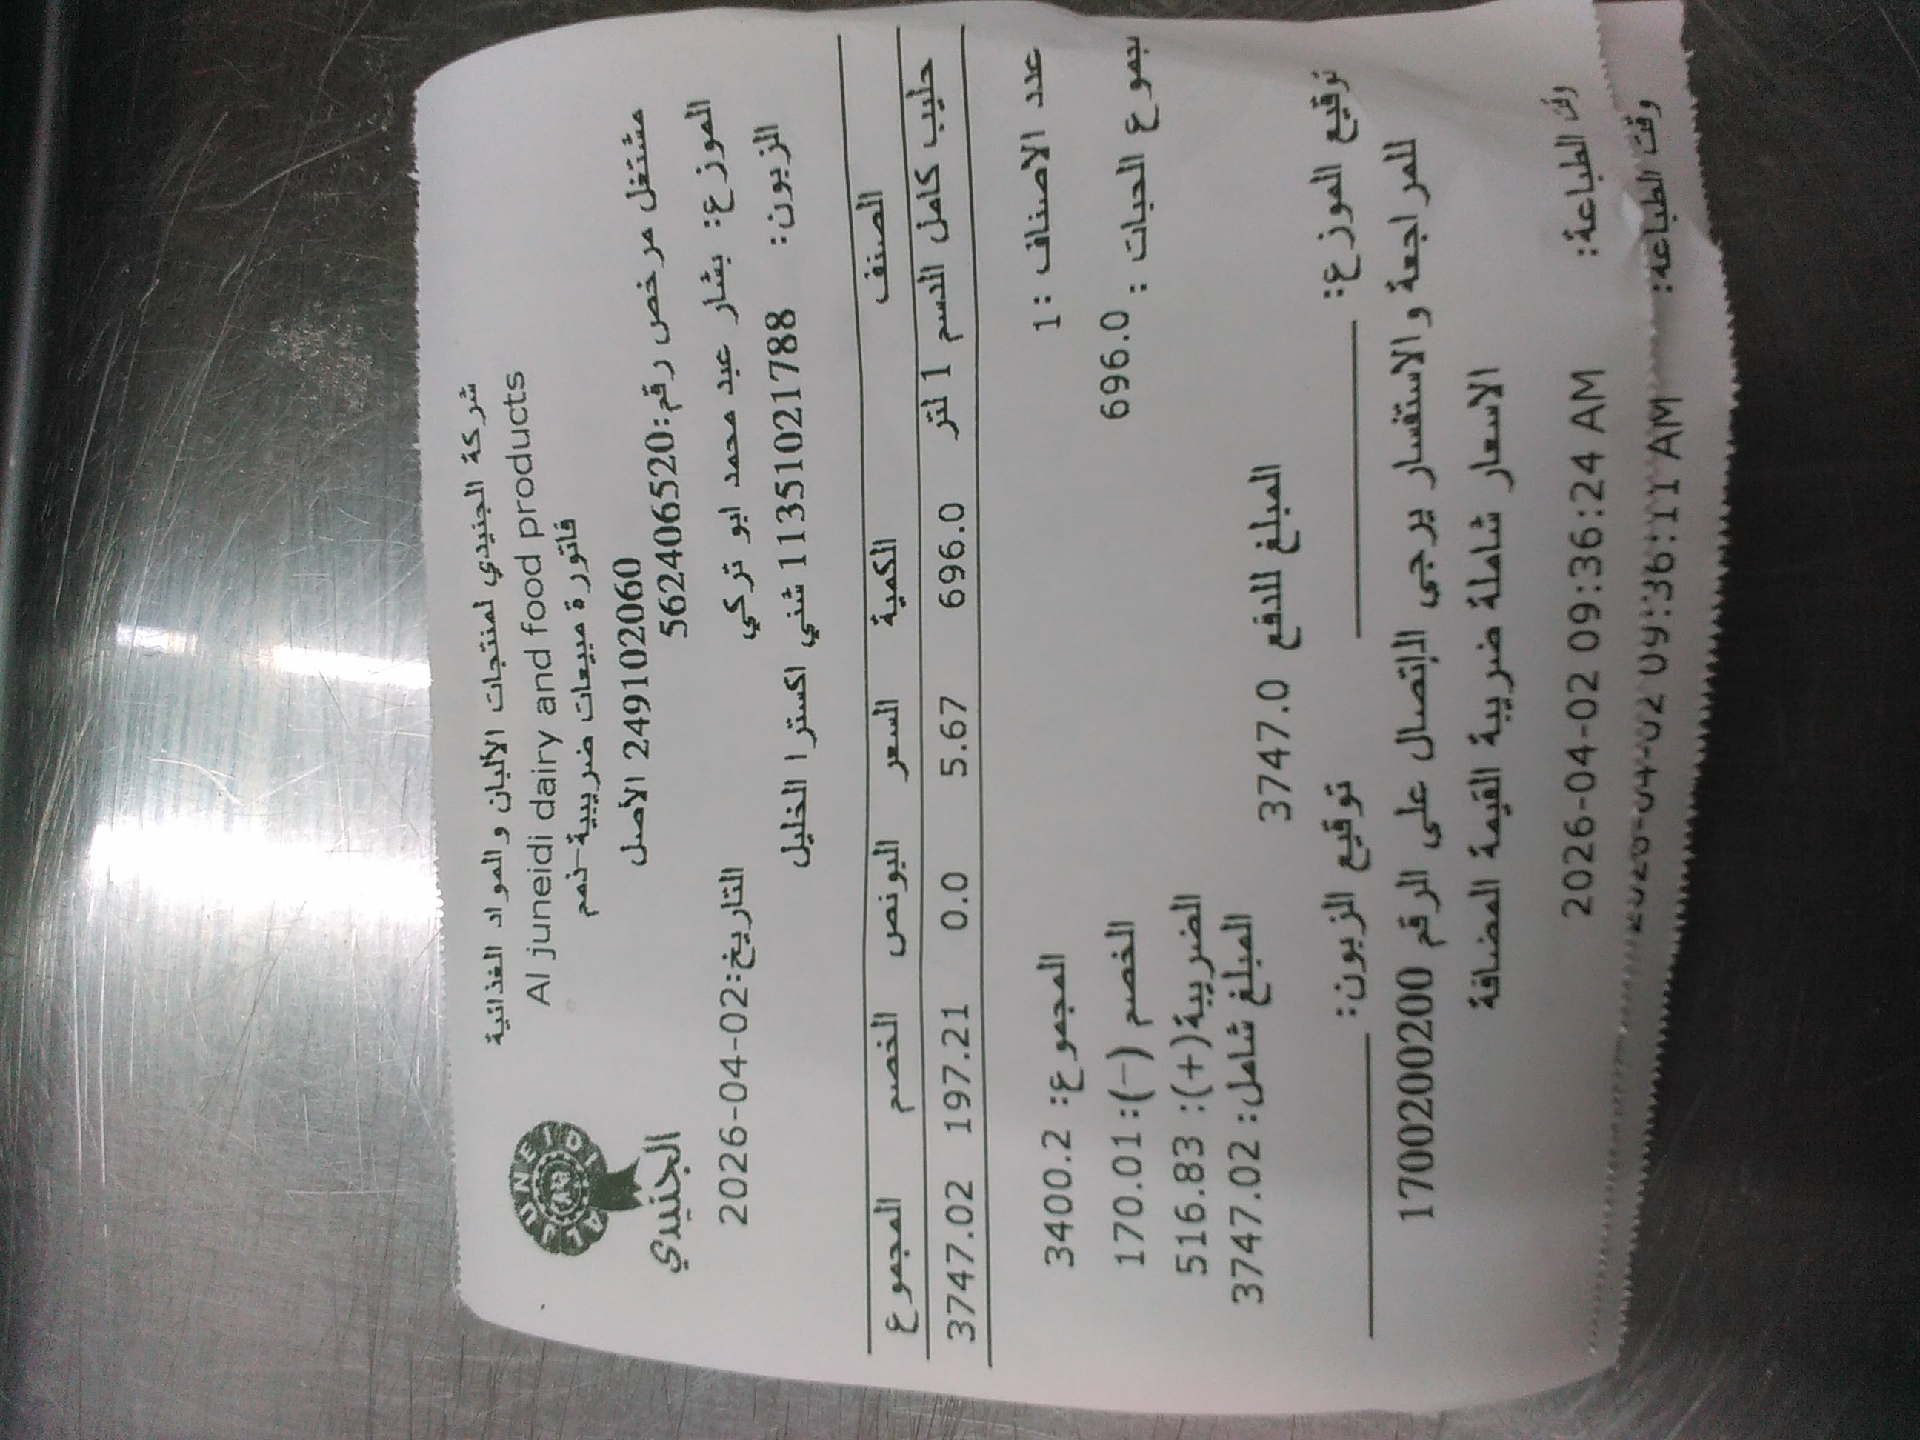 شركة الجنيدي لمنتجات الألبان والمواد الغذائية
Al juneidi dairy and food products
فاتورة مبيعات ضريبية-ذمم
AL JUNEIDI
الجنيدي
249102060 الأصل
مشتغل مرخص رقم:562406520
الموزع: بشار عبد محمد ابو تركي
التاريخ:2026-04-02
الزبون: 11351021788 شني اكسترا الخليل
الصنف الكمية السعر البونص الخصم المجموع
حليب كامل الدسم 1 لتر 696.0 5.67 0.0 197.21 3747.02
عدد الاصناف :1
المجموع: 3400.2
مجموع الحبات : 696.0
الخصم (-): 170.01
الضريبة(+): 516.83
المبلغ شامل: 3747.02
المبلغ للدفع 3747.0
توقيع الموزع: توقيع الزبون:
للمراجعة والاستفسار يرجى الإتصال على الرقم 1700200200
الاسعار شاملة ضريبة القيمة المضافة
وقت الطباعة: 2026-04-02 09:36:24 AM
وقت الطباعة: 2026-04-02 09:36:11 AM